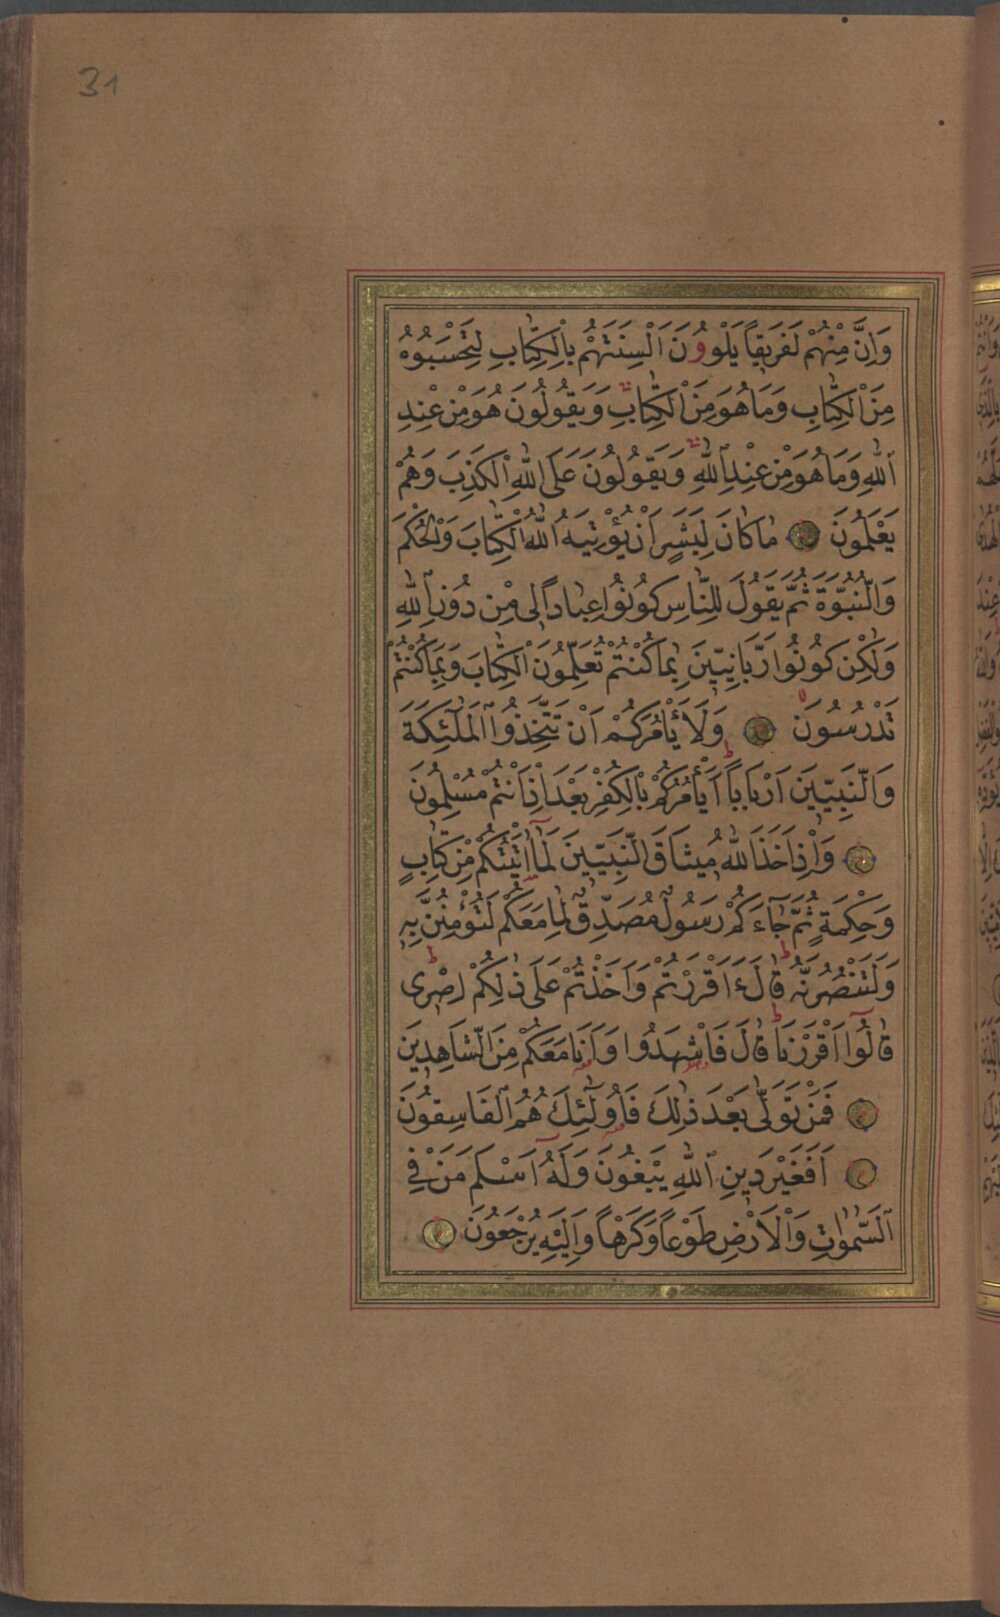 31
وَاِنَّ مِنْهُمْ لَفَرِيقاً يَلْوُونَ اَلْسِنَتَهُمْ بِالْكِتَابِ لِتَحْسَبُوهُ
مِنَ الْكِتَابِ وَمَا هُوَ مِنَ الْكِتَابِ وَيَقُولُونَ هُوَ مِنْ عِنْدِ
اللّٰهِ وَمَا هُوَ مِنْ عِنْدِ اللّٰهِ وَيَقُولُونَ عَلَى اللّٰهِ الْكَذِبَ وَهُمْ
يَعْلَمُونَ مَا كَانَ لِبَشَرٍ اَنْ يُؤْتِيَهُ اللّٰهُ الْكِتَابَ وَالْحُكْمَ
وَالنُّبُوَّةَ ثُمَّ يَقُولَ لِلنَّاسِ كُونُوا عِبَاداً لِى مِنْ دُونِ اللّٰهِ
وَلٰكِنْ كُونُوا رَبَّانِيِّينَ بِمَا كُنْتُمْ تُعَلِّمُونَ الْكِتَابَ وَبِمَا كُنْتُمْ
تَدْرُسُونَ وَلَا يَأْمُرَكُمْ اَنْ تَتَّخِذُوا الْمَلٰئِكَةَ
وَالنَّبِيِّينَ اَرْبَاباً اَيَأْمُرُكُمْ بِالْكُفْرِ بَعْدَ اِذْ اَنْتُمْ مُسْلِمُونَ
وَاِذْ اَخَذَ اللّٰهُ مِيثَاقَ النَّبِيِّينَ لَمَا اٰتَيْتُكُمْ مِنْ كِتَابٍ
وَحِكْمَةٍ ثُمَّ جَآءَكُمْ رَسُولٌ مُصَدِّقٌ لِمَا مَعَكُمْ لَتُؤْمِنُنَّ بِهِ
وَلَتَنْصُرُنَّهُ قَالَ ءَاَقْرَرْتُمْ وَاَخَذْتُمْ عَلَى ذٰلِكُمْ اِصْرِى
قَالُوا اَقْرَرْنَا قَالَ فَاشْهَدُوا وَاَنَا مَعَكُمْ مِنَ الشَّاهِدِينَ
فَمَنْ تَوَلّٰى بَعْدَ ذٰلِكَ فَاُولٰئِكَ هُمُ الْفَاسِقُونَ
اَفَغَيْرَ دِينِ اللّٰهِ يَبْغُونَ وَلَهُ اَسْلَمَ مَنْ فِي
السَّمٰوَاتِ وَالْاَرْضِ طَوْعاً وَكَرْهاً وَاِلَيْهِ يُرْجَعُونَ